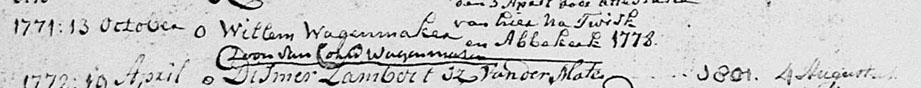 den 3 April door attestatie
1771: 13 October o Willem Wagenmaker van hier na Twisk
en Abbekerk 1773.
Zoon van Corn.s Wagenmaker
1772: 19 April o Dirmer Lambert sz van der Mate 1801. 4 Augustus